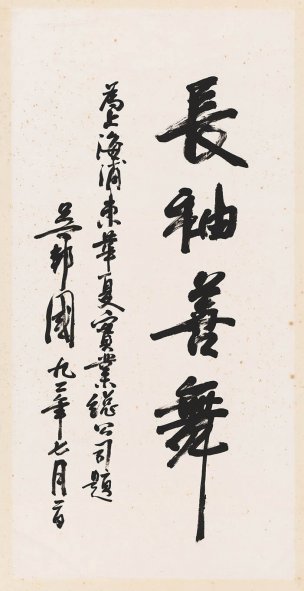 長袖善舞
為上海浦東華夏實業總公司題
吴邦國 九二年七月一日